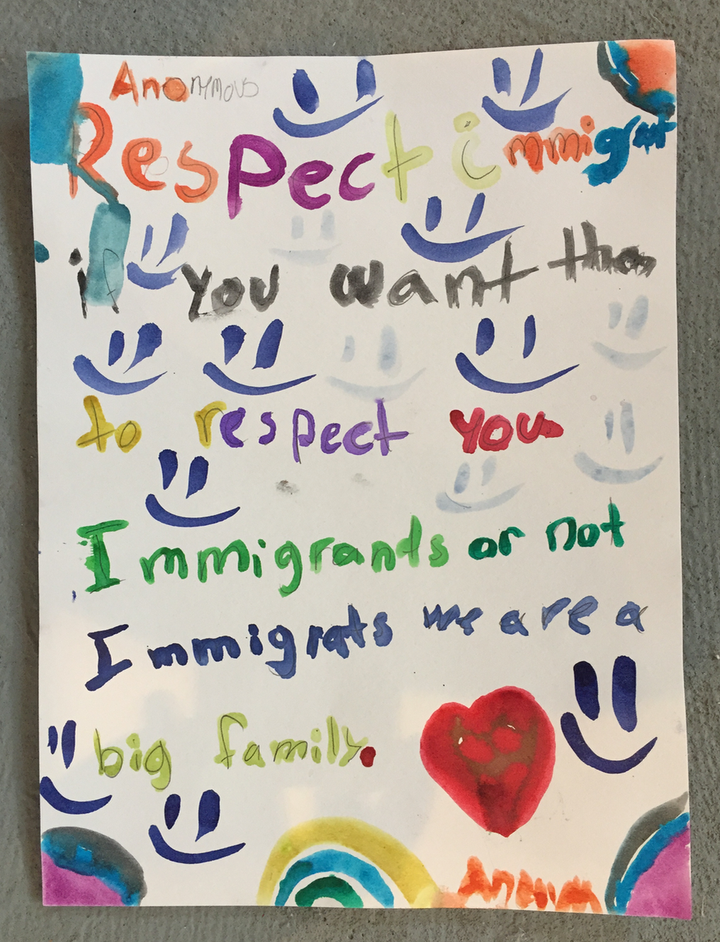 Anonymous
Respect immigrat
if you want them
to respect you
Immigrands or not
Immigrats we are a
big family.